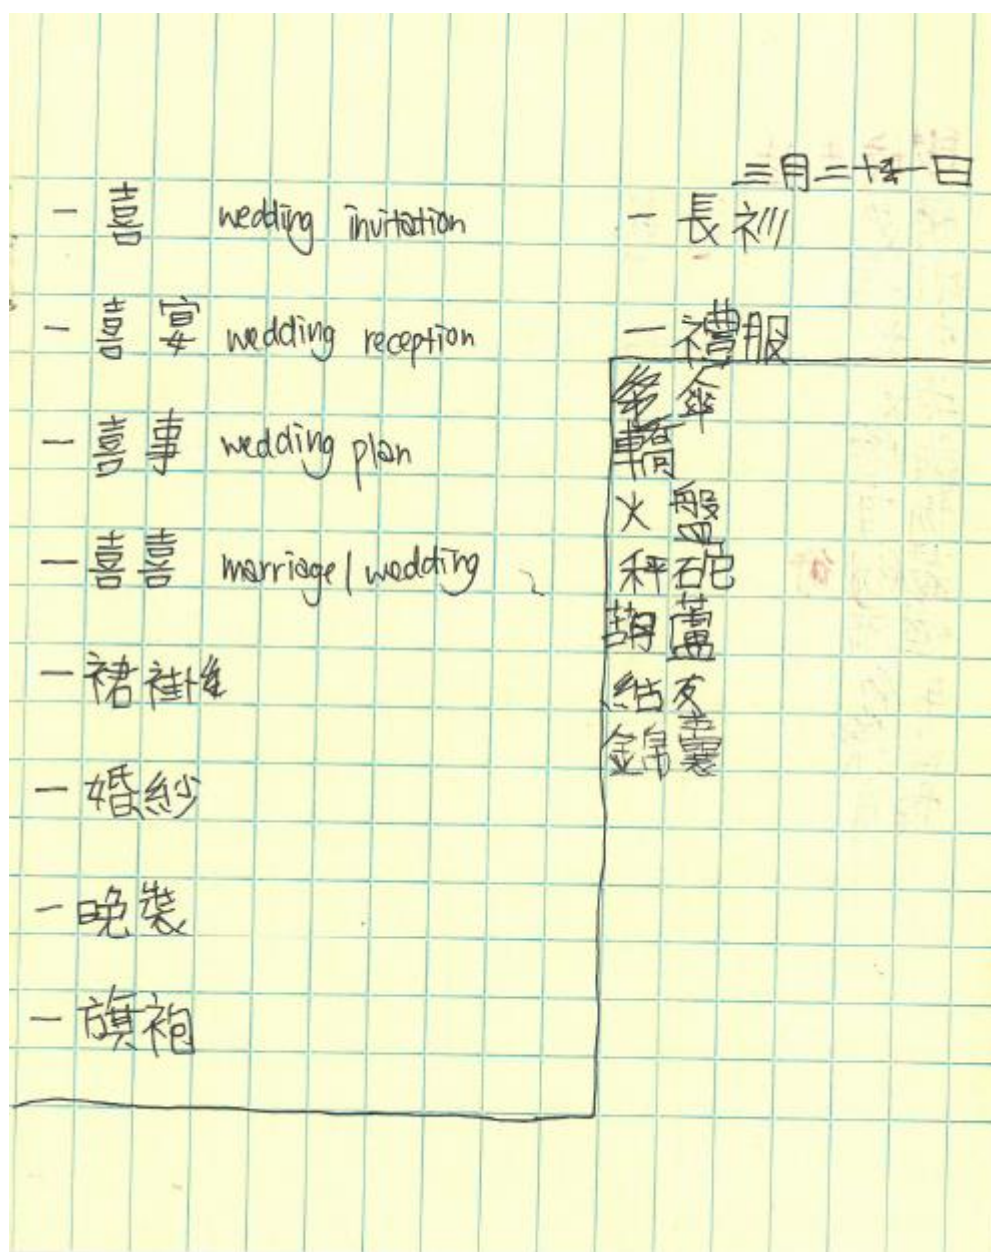 三月二十一日
一 喜 wedding invitation
一 喜宴 wedding reception
一 喜事 wedding plan
一 喜喜 marriage / wedding
一 裙褂
一 婚紗
一 晚裝
一 旗袍
一 長衫
一 禮服
傘
轎
火盤
秤砣
葫蘆
結
錦囊